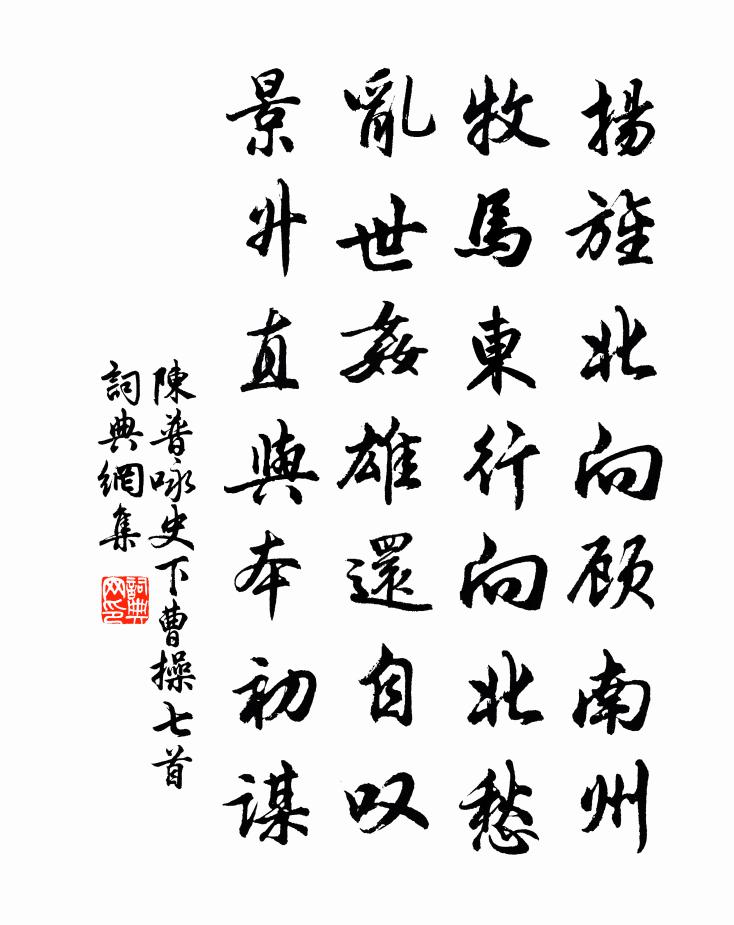 揚旌北向顾南州
牧馬東行向北愁
亂世姦雄還自叹
景升直與本初謀
陳普咏史下曹操七首
詞典網集
詞典网印